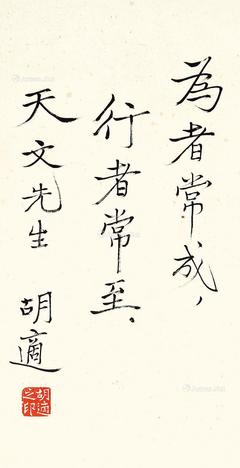 為者常成，
行者常至．
天文先生
胡適
胡適之印